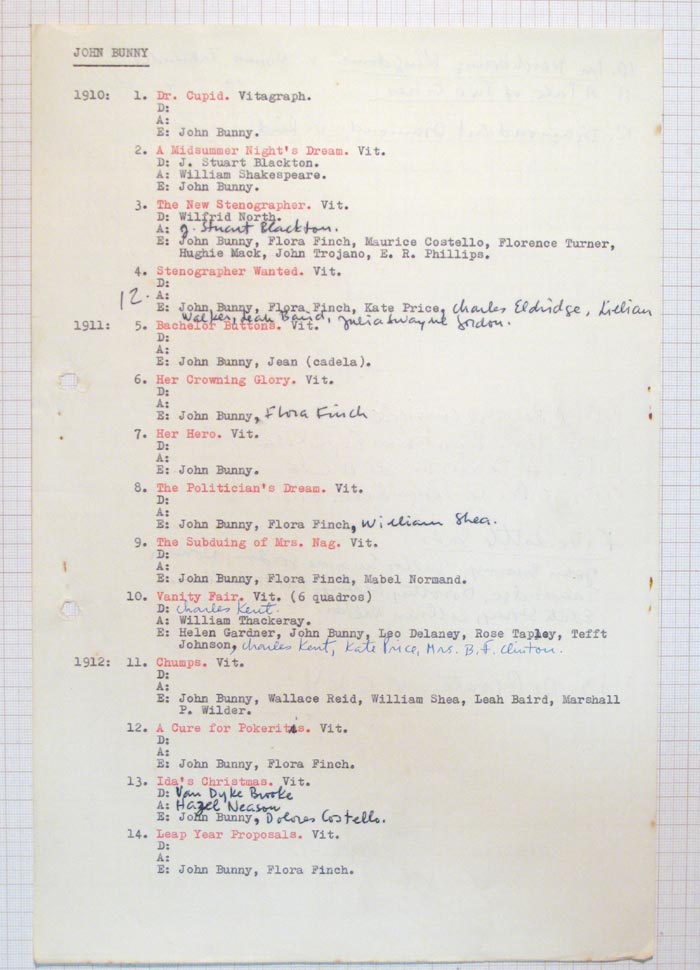 JOHN BUNNY
1910: 1. Dr. Cupid. Vitagraph.
D:
A:
E: John Bunny.
2. A Midsummer Night's Dream. Vit.
D: J. Stuart Blackton.
A: William Shakespeare.
E: John Bunny.
3. The New Stenographer. Vit.
D: Wilfrid North.
A: J. Stuart Blackton.
E: John Bunny, Flora Finch, Maurice Costello, Florence Turner,
Hughie Mack, John Trojano, E. R. Phillips.
4. Stenographer Wanted. Vit.
D:
12. A:
E: John Bunny, Flora Finch, Kate Price, Charles Eldridge, Lillian
Walker, Leah Baird, Julia Swayne Gordon.
1911: 5. Bachelor Buttons. Vit.
D:
A:
E: John Bunny, Jean (cadela).
6. Her Crowning Glory. Vit.
D:
A:
E: John Bunny, Flora Finch
7. Her Hero. Vit.
D:
A:
E: John Bunny.
8. The Politician's Dream. Vit.
D:
A:
E: John Bunny, Flora Finch, William Shea.
9. The Subduing of Mrs. Nag. Vit.
D:
A:
E: John Bunny, Flora Finch, Mabel Normand.
10. Vanity Fair. Vit. (6 quadros)
D: Charles Kent.
A: William Thackeray.
E: Helen Gardner, John Bunny, Leo Delaney, Rose Tapley, Tefft
Johnson, Charles Kent, Kate Price, Mrs. B. F. Clinton.
1912: 11. Chumps. Vit.
D:
A:
E: John Bunny, Wallace Reid, William Shea, Leah Baird, Marshall
P. Wilder.
12. A Cure for Pokeritis. Vit.
D:
A:
E: John Bunny, Flora Finch.
13. Ida's Christmas. Vit.
D: Van Dyke Brooke
A: Hazel Neason
E: John Bunny, Dolores Costello.
14. Leap Year Proposals. Vit.
D:
A:
E: John Bunny, Flora Finch.